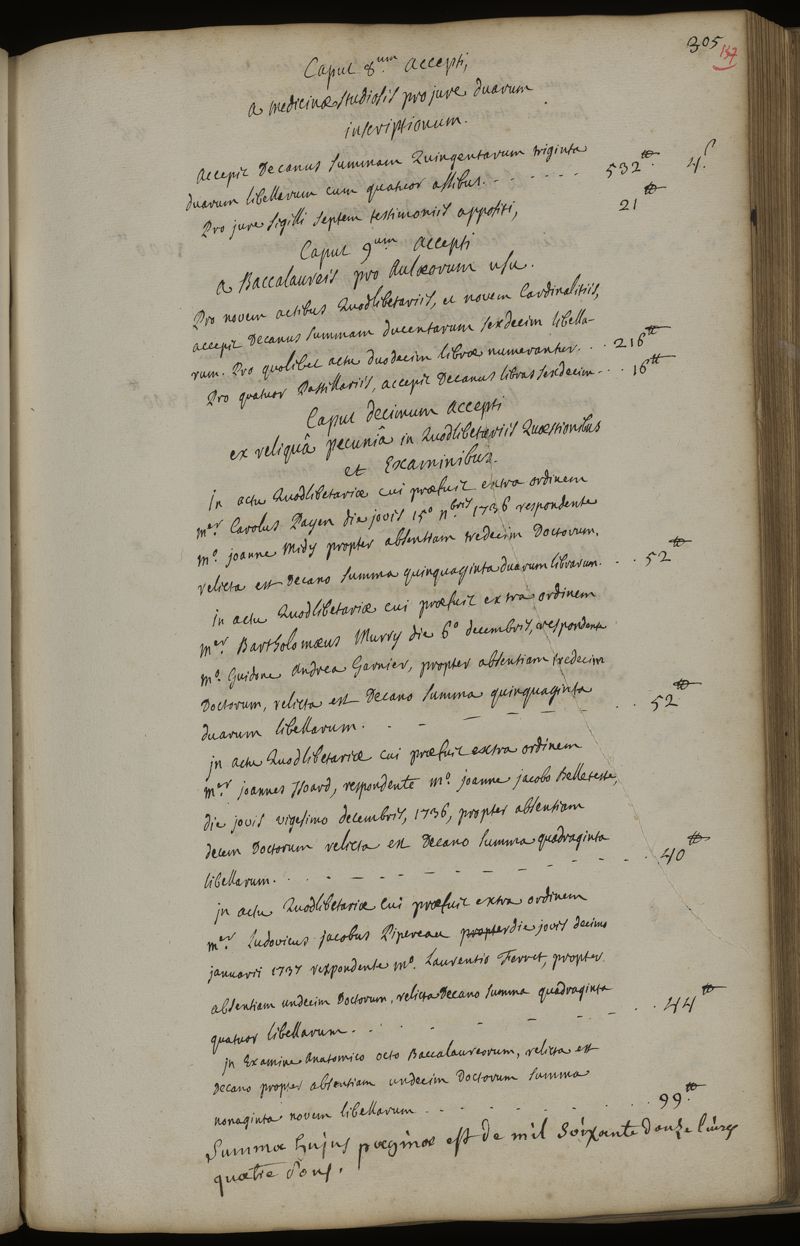 305
157
Caput 8.um accepti,
a medicinæ studiosis pro jure duarum
inscriptionum.
accepit Decanus summam Quingentarum triginta
duarum libellarum cum quatuor assibus. - - - - - - 532.tt 4.s
Pro jure sigilli septem testimoniis appositi, 21tt
Caput 9.um accepti
a Baccalaureis pro aulæorum usu.
Pro novem actibus Quodlibetariis, et novem Cardinalitiis,
accepit Decanus summam ducentarum sexdecim libella-
rum. Pro quolibet actu duodecim libræ numerantur. . . 216tt
Pro quatuor Pastillariis, accepit Decanus libras sexdecim - . . 16tt
Caput decimum accepti
ex reliquâ pecuniâ in Quodlibetariis Quæstionibus
et Examinibus.
In actu Quodlibetariæ cui præfuit extra ordinem
m.er Carolus Payen die jovis 15.o n.bris 1736 respondente
m.o joanne Midy propter absentiam tredecim Doctorum,
relicta est Decano summa quinquaginta duarum librarum. . . 52tt
in actu Quodlibetariæ cui præfuit extra ordinem
m.er Bartholomæus Murry die 6.o decembris, respondente
m.o Guidone Andrea Garnier, propter absentiam tredecim
Doctorum, relicta est Decano summa quinquaginta
duarum libellarum. - - - - - . . 52tt
jn actu Quodlibetariæ cui præfuit extra ordinem
m.er joannes Hoard, respondente m.o joanne jacobo Belleteste,
die jovis vigesimo decembris, 1736, propter absentiam
decem Doctorum relicta est Decano summa quadraginta
libellarum. . . - - - - - - - - . 40tt
jn actu Quodlibetariæ cui præfuit extra ordinem
m.er Ludovicus jacobus Pipereau propter die jovis decimo
januarii 1737 respondente m.o Laurentio Ferret, propter
absentiam undecim Doctorum, relicta Decano summa quadraginta
quatuor libellarum. . - - - - - . . 44tt
jn Examine Anatomico octo Baccalaureorum, relicta est
Decano propter absentiam undecim Doctorum summa
nonaginta novem libellarum - - - - . . . 99.tt
Summa hujus paginæ est de mil soixante douze livres
quatre sous.